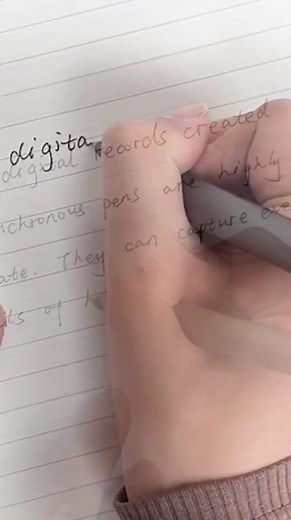 digita
digital records created
nchronous pens are highly
ate. They can capture eve
ts of